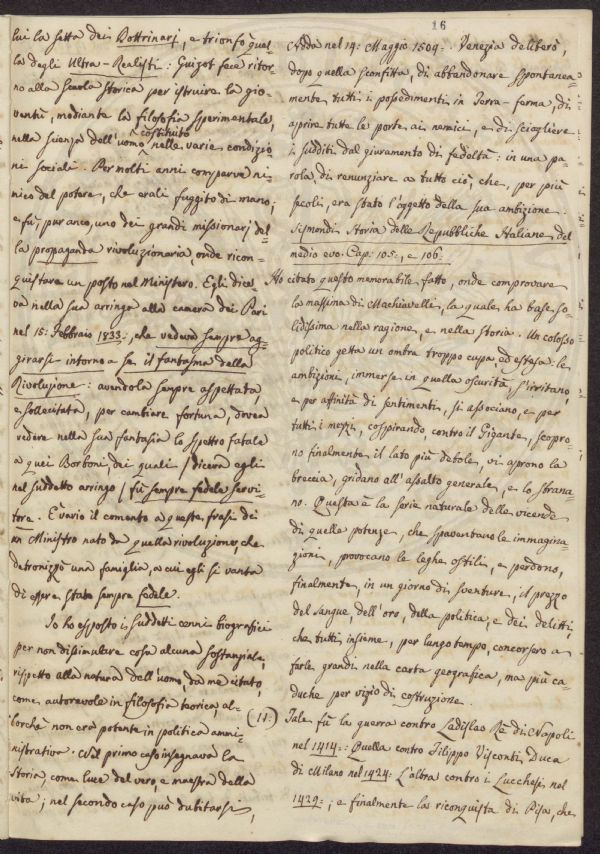 16
lui la setta dei Dottrinarj, e trionfò quel=
la degli Ultra-Realisti: Guizot fece ritor=
no alla scuola storica per istruire la gio=
ventù, mediante la filosofia sperimentale,
nella scienza dell'uomo costituito nelle varie condizio=
ni sociali. Per molti anni comparve ne=
mico del potere, che erali fuggito di mano;
e fù, pur anco, uno dei grandi missionarj del=
la propaganda rivoluzionaria, onde ricon=
quistare un posto nel Ministero. Egli dice=
va nella sua arringa alla camera dei Pari
nel 15: Febbraio 1833:, che vedeva sempre ag=
girarsi intorno a se il fantasma della
Rivoluzione: avendola sempre aspettata,
e sollecitata, per cambiare fortuna, dovea
vedere nella sua fantasia lo spetro fatale
a quei Borboni, dei quali / diceva egli
nel suddetto arringo / fù sempre fedele servi=
tore. È vario il comento a queste frasi di
un Ministro nato da quella rivoluzione, che
detronizzò una famiglia, a cui egli si vanta
di essere stato sempre fedele.
Io ho esposto i suddetti cenni biografici
per non dissimulare cosa alcuna sostanziale,
rispetto alla natura dell'uomo, da me citato,
come autorevole in filosofia teorica, al=
lorchè non era potente in politica ammi=
nistrativa. Nel primo caso insegnava la
Storia, come luce del vero, e maestra della
vita; nel secondo caso può dubitarsi,
Adda nel 14: Maggio 1509:. Venezia deliberò,
dopo quella sconfitta, di abbandonare spontanea=
mente tutti i possedimenti in Terra-ferma, di
aprire tutte le porte ai nemici, e di sciogliere
i sudditi dal giuramento di fedeltà: in una pa=
rola, di renunziare a tutto ciò, che, per più
secoli, era stato l'oggetto della sua ambizione.
Sismondi Storia delle Repubbliche Italiane del
medio evo: Cap: 105:, e 106:
Ho citato questo memorabile fatto, onde comprovare
la massima di Machiavelli, la quale ha base so=
lidissima nella ragione, e nella storia. Un colosso
politico getta un ombra troppo cupa, ed estesa: le
ambizioni, immerse in quella oscurità, s'irritano,
e per affinità di sentimenti, si associano, e per
tutti i mezzi, cospirando contro il Gigante, scopro=
no finalmente il lato più debole, vi aprono la
breccia, gridano all'assalto generale, e lo sbrana=
no. Questa è la serie naturale delle vicende
di quelle potenze, che spaventano le immagina=
zioni, provocano le leghe ostili, e perdono,
finalmente, in un giorno di sventure, il prezzo
del sangue, dell'oro, della politica, e dei delitti,
che tutti insieme, per lungo tempo, concorsero a
farle grandi nella carta geografica, ma più ca=
duche per vizio di costruzione.
(11:) Tale fù la guerra contro Ladislao Re di Napoli
nel 1414:: Quella contro Filippo Visconti Duca
di Milano nel 1424: L'altra contro i Lucchesi nel
1429:; e finalmente la riconquista di Pisa, che